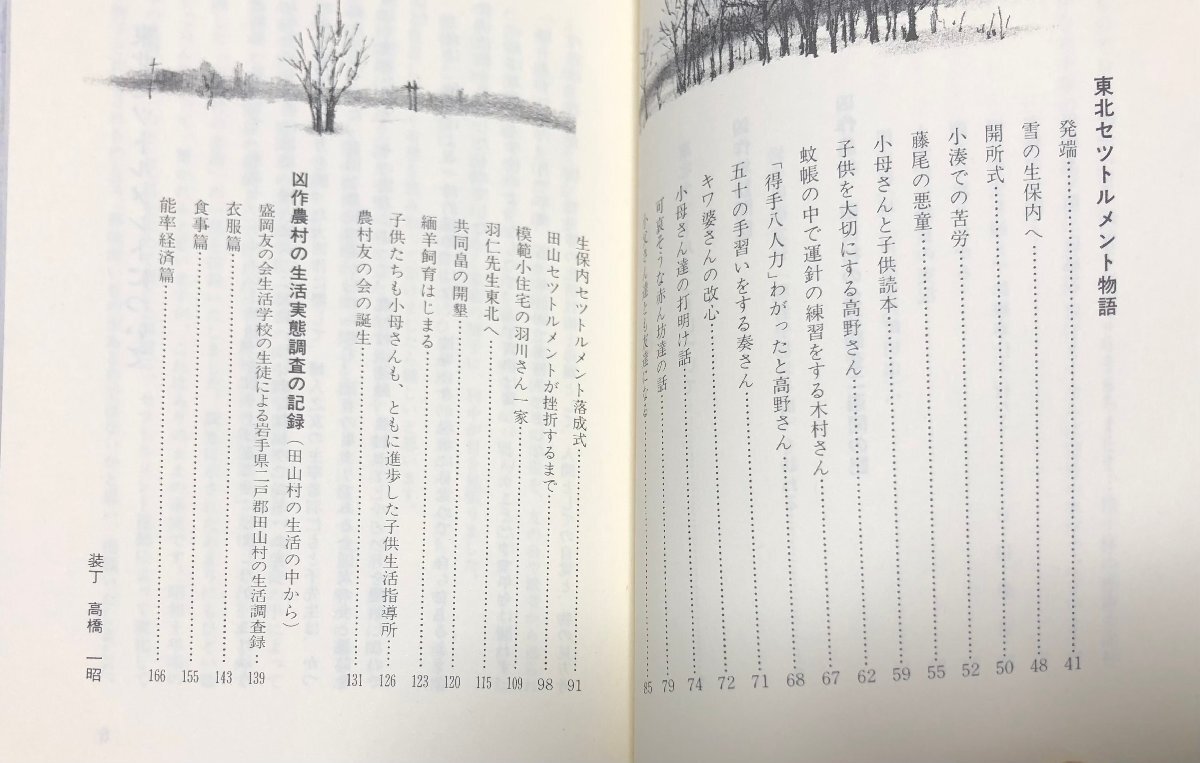 東北セツトルメント物語
発端……………41
雪の生保内へ……………48
開所式……………50
小湊での苦労……………52
藤尾の悪童……………55
小母さんと子供読本……………59
子供を大切にする高野さん……………62
蚊帳の中で運針の練習をする木村さん……………67
「得手八人力」わがったと高野さん……………68
五十の手習いをする奏さん……………71
キワ婆さんの改心……………72
小母さん達の打明け話……………74
可哀そうな赤ん坊達の話……………79
さん達とも……………85
生保内セツトルメント落成式……………91
田山セツトルメントが挫折するまで……………98
模範小住宅の羽川さん一家……………109
羽仁先生東北へ……………115
共同畠の開墾……………120
緬羊飼育はじまる……………123
子供たちも小母さんも、ともに進歩した子供生活指導所……………126
農村友の会の誕生……………131
凶作農村の生活実態調査の記録（田山村の生活の中から）
盛岡友の会生活学校の生徒による岩手県二戸郡田山村の生活調査録…139
衣服篇……………143
食事篇……………155
能率経済篇……………166
装丁 高橋 一昭